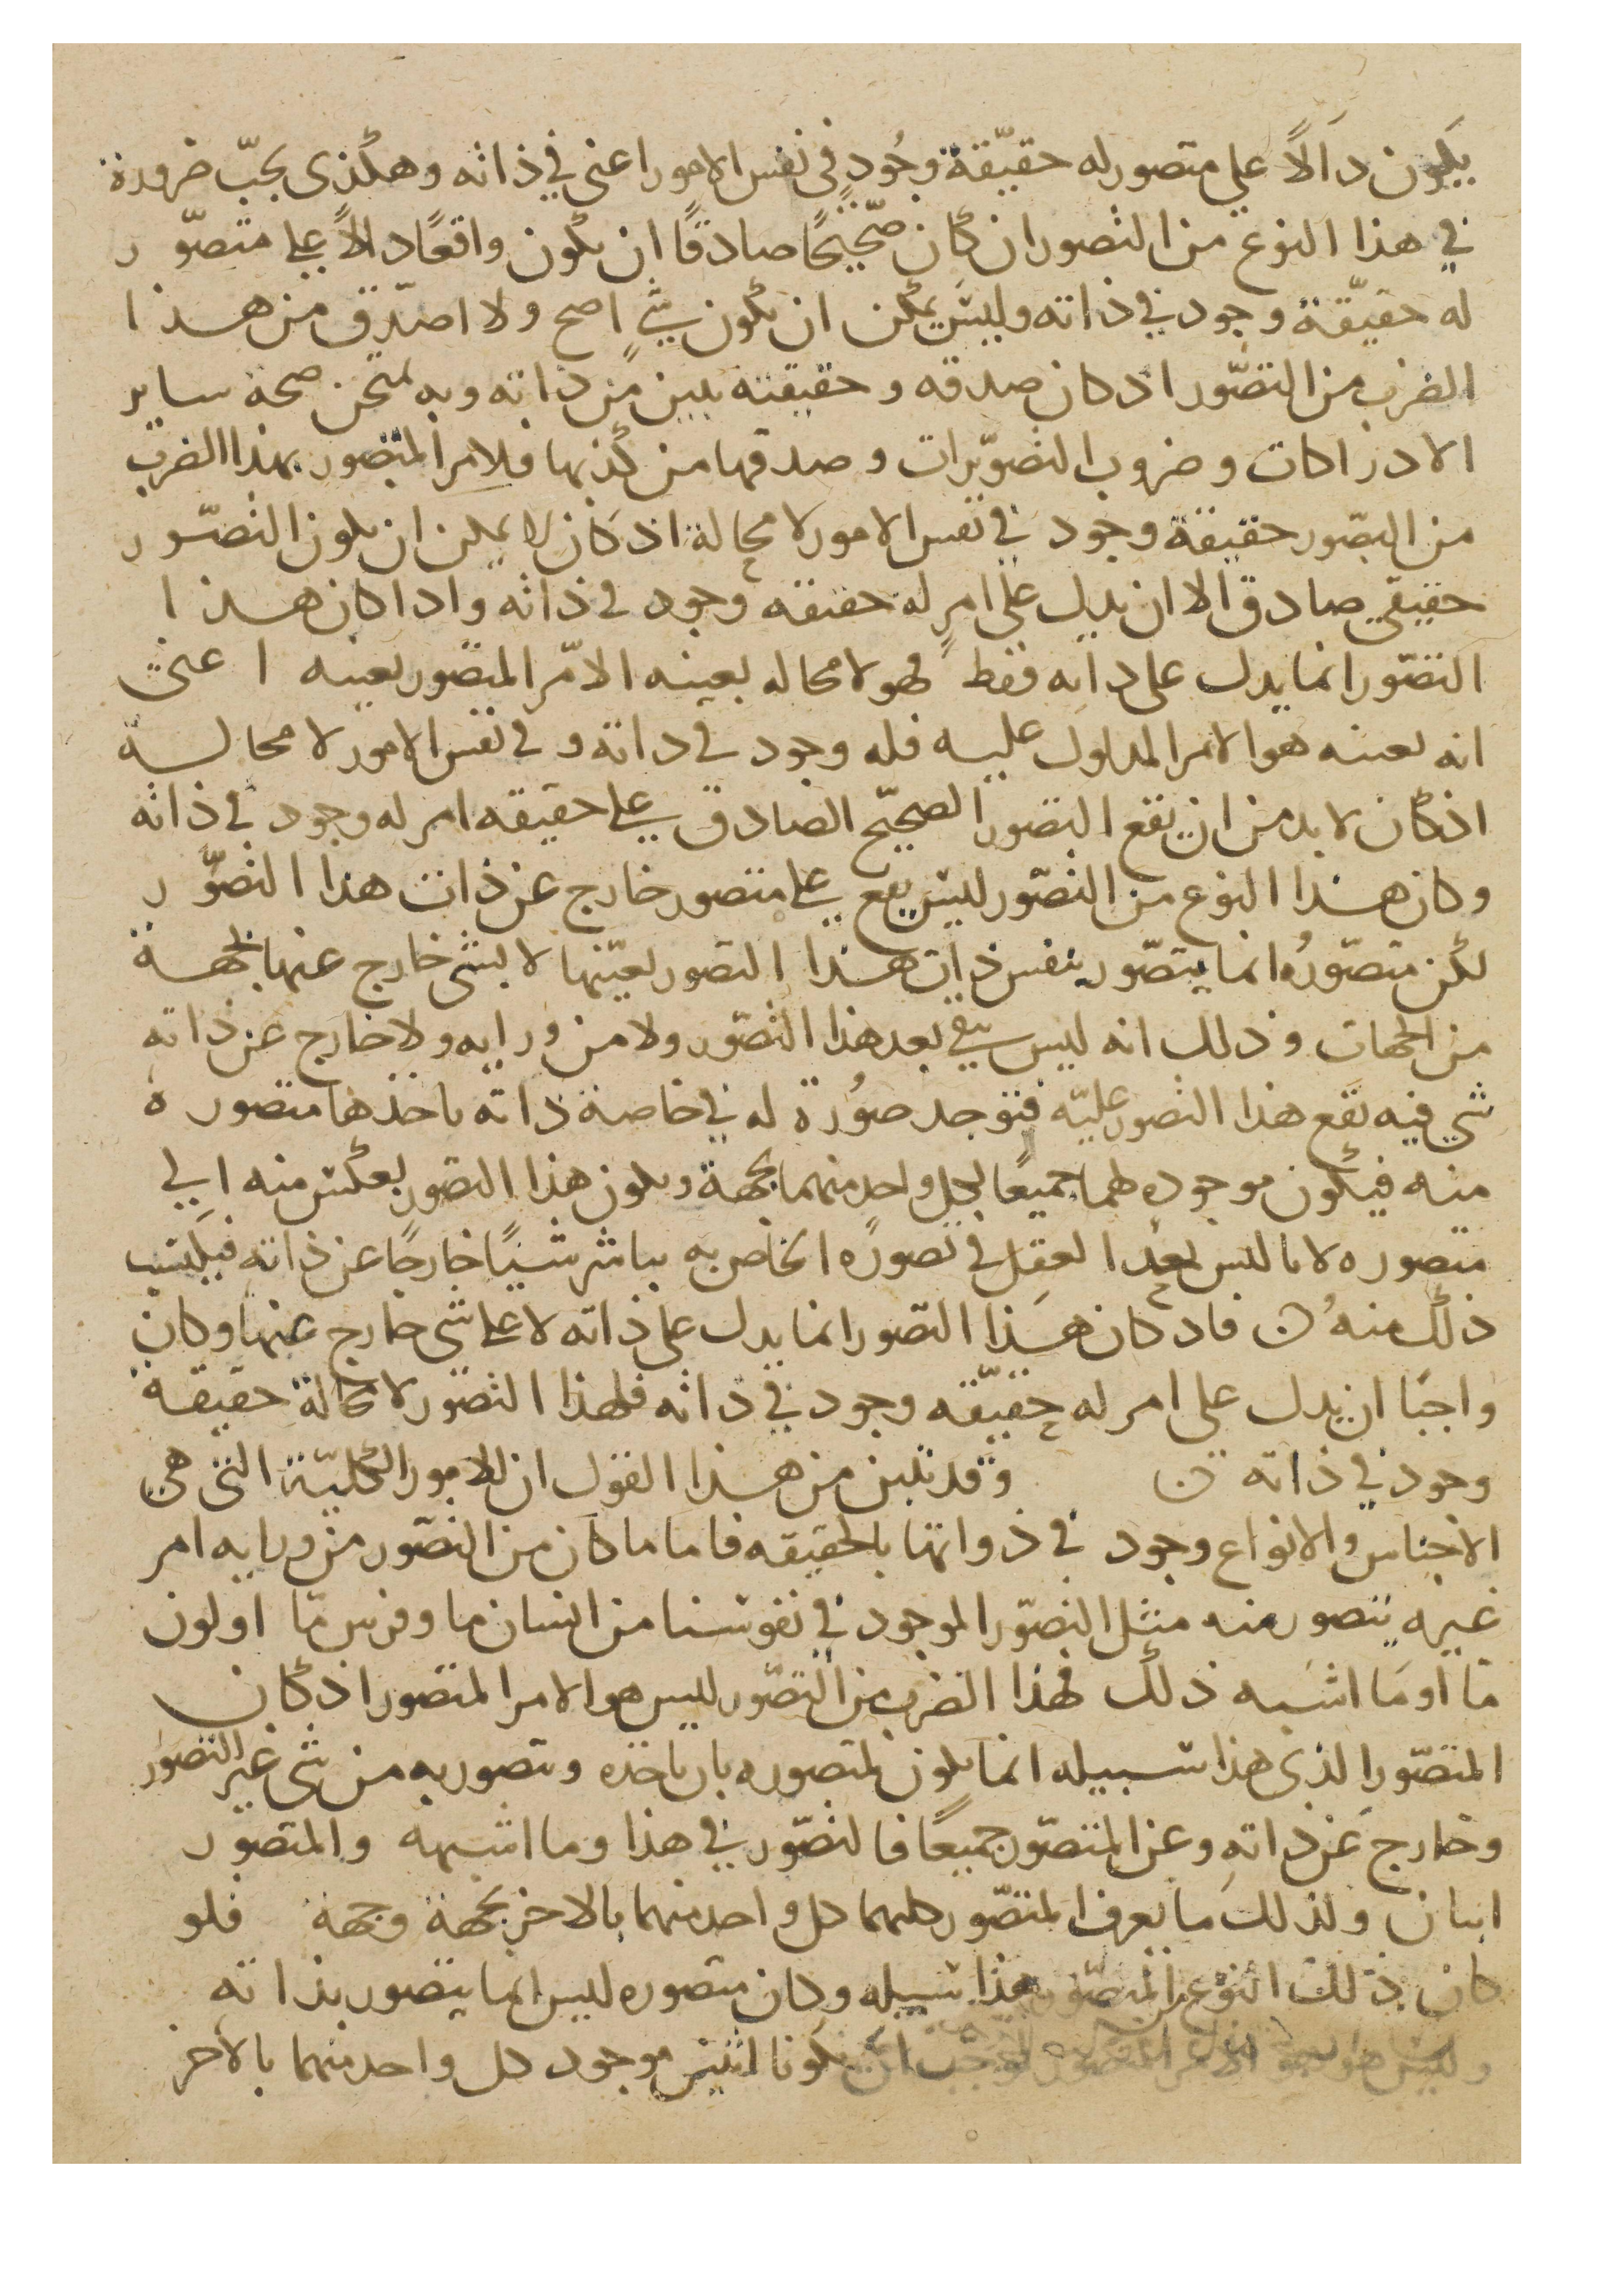 يكون دالًا علي متصور له حقيّقة وجُود في نفس الامور اعني في ذاته وهكذى يجبّ ضرورة
في هذا النوع من التصور ان كان صّحيحًا صادقًا ان يكون واقعًا دالاً على متصوّر
له حقيّقة وجود في ذاته وليس يمكن ان يكون شيٍ اصح ولا اصدّق من هذا
الضرب من التصّور اذ كان صدقه وحقيقته بين من ذاته وبه تمتحن صحة ساير
الادراكات وضروب التصوّرات وصدقها من كذبها فلامر المتصور بهذا الضرب
من التصّور حقيقة وجود في نفس الامور لا محالة اذ كان لا يمكن ان يكون التصّور
حقيقي صادق الا ان يدل على امرٍ له حقيقه وجود في ذاته واذا كان هذا
التصّور انما يدل على ذاته فقط فهو لا محاله بعينه الامّر المتصور بعينه اعني
انه بعينه هو الامر المدلول عليه فله وجود في ذاته وفي نفس الامور لا محالة
اذ كان لا بد من ان يقع التصور الصحيّح الصادق على حقيقه امر له وجود في ذاته
وكان هذا النوع من التصّور ليس يقع على متصور خارج عن ذات هذا التصوُّر
لكن متصوّرُه انما يتصّور بنفس ذات هذا التصور بعيّنها لا بشي خارج عنها بجهة
من الجهات وذلك انه ليس يبقي بعد هذا التصّور ولا من ورايه ولا خارج عن ذاته
شي فيه يقع هذا التصور عليّه فتوجد صوُرة له في خاصة ذاته ياخذها متصوره
منه فيكون موجوده لهما جميعًا لكل واحد منهما بجهة ويكون هذا التصور يعكس منه الي
متصوره لانا ليس نعدُ العقل في تصوره الخاص به يباشر شيًا خارجًا عن ذاته فيكتسب
ذلك منهُ ن فاذ كان هَذا التصور انما يدل على ذاته لا على شي خارج عنها وكان
واجبًا ان يدل على امر له حقيّقه وجود في ذاته فلهذا التصّور لا محالة حقيقة
وجود في ذاته ن وقد تبين من هذا القول ان للامور الكليّة التي هي
الاجناس والانواع وجود في ذواتها بالحقيقه فاما ما كان من التصّور من ورايه امر
غيره يتصور منه مثل التصّور الموجود في نفوسنا من انسان ما وفرس مّا او لون
مّا او ما اشبه ذلك فهذا الضرب من التصّور ليس هو الامر المتصور اذ كان
المتصّور الذي هذا سبيله انما يكون لمتصوره بان ياخذه ويتصور به من شي غير التصور
وخارج عن ذاتهِ وعن المتصّور جميعًا فالتصّور في هذا وما اشبهه والمتصور
اثنان ولذلك ما يعرف المتصّور كليهما كل واحد منهما بالاخر بجهة وجهة فلو
كان ذلك النوع من المتصّور هذا سبيله وكان متصوره ليس انما يتصور بذاته
وليس هو الامر المتصور لوجب ان يكونا اثنين موجود كل واحد منهما بالاخر